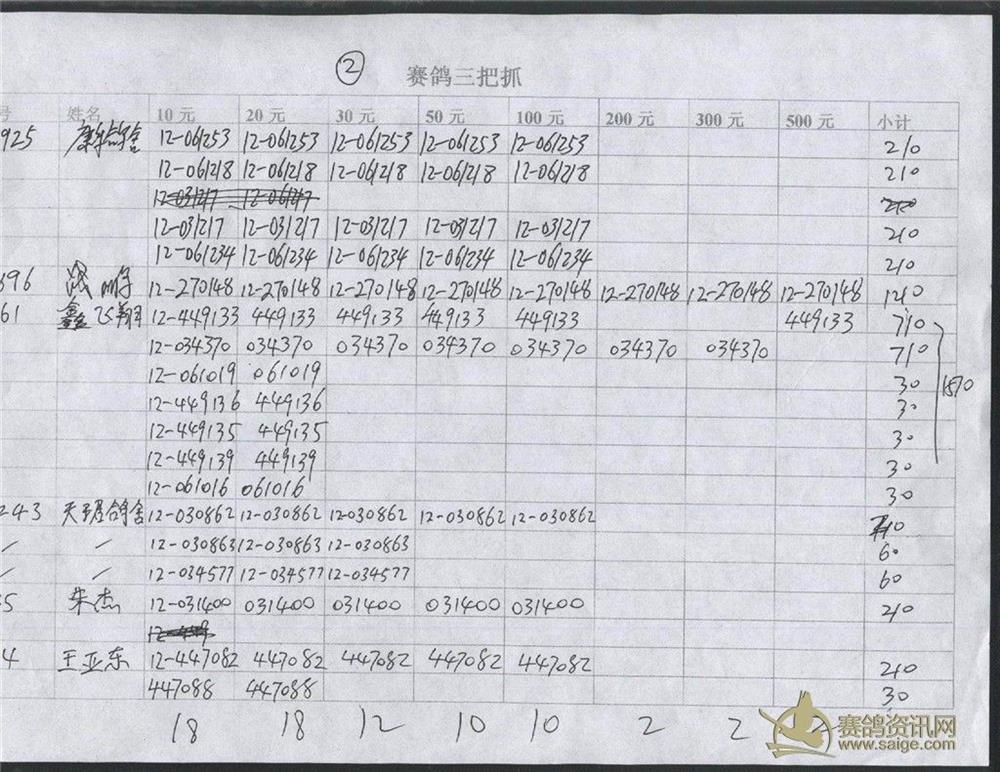 ② 赛鸽三把抓
号 姓名 10 元 20 元 30 元 50 元 100 元 200 元 300 元 500 元 小计
925 12-061253 12-061253 12-061253 12-061253 12-061253 210
12-061218 12-061218 12-061218 12-061218 12-061218 210
12-031217 12-061217 210
12-031217 12-031217 12-031217 12-031217 12-031217 210
12-061234 12-061234 12-061234 12-061234 12-061234 210
696 12-270148 12-270148 12-270148 12-270148 12-270148 12-270148 12-270148 12-270148 1210
61 鑫飞翔 12-449133 449133 449133 449133 449133 449133 710
12-034370 034370 034370 034370 034370 034370 034370 710
12-061019 061019 30 1570
12-449136 449136 30
12-449135 449135 30
12-449139 449139 30
12-061016 061016 30
243 12-030862 12-030862 12-030862 12-030862 12-030862 210
/ / 12-030863 12-030863 12-030863 60
/ / 12-034577 12-034577 12-034577 60
5 朱杰 12-031400 031400 031400 031400 031400 210
4 王亚东 12-447082 447082 447082 447082 447082 210
447088 447088 30
18 18 12 10 10 2 2 2
赛鸽资讯网
www.saige.com